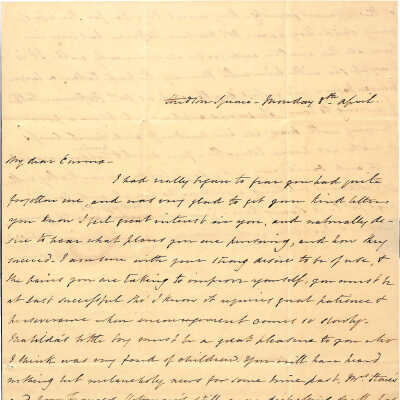 Hudson Square - Monday 8th April.
My dear Emma -
I had really begun to fear you had quite
forgotten me, and was very glad to get your kind letter
you know I feel great interest in you, and naturally de-
sire to hear what plans you are pursuing, and how they
succeed. I am sure with your strong desire to be of use, &
the pains you are taking to improve yourself, you must be
at last successful tho' I know it requires great patience &
perseverance when encouragement comes so slowly.
Matilda's little boy must be a great pleasure to you who
I think was very fond of children. You will have heard
nothing but melancholy news for some time past, Mrs